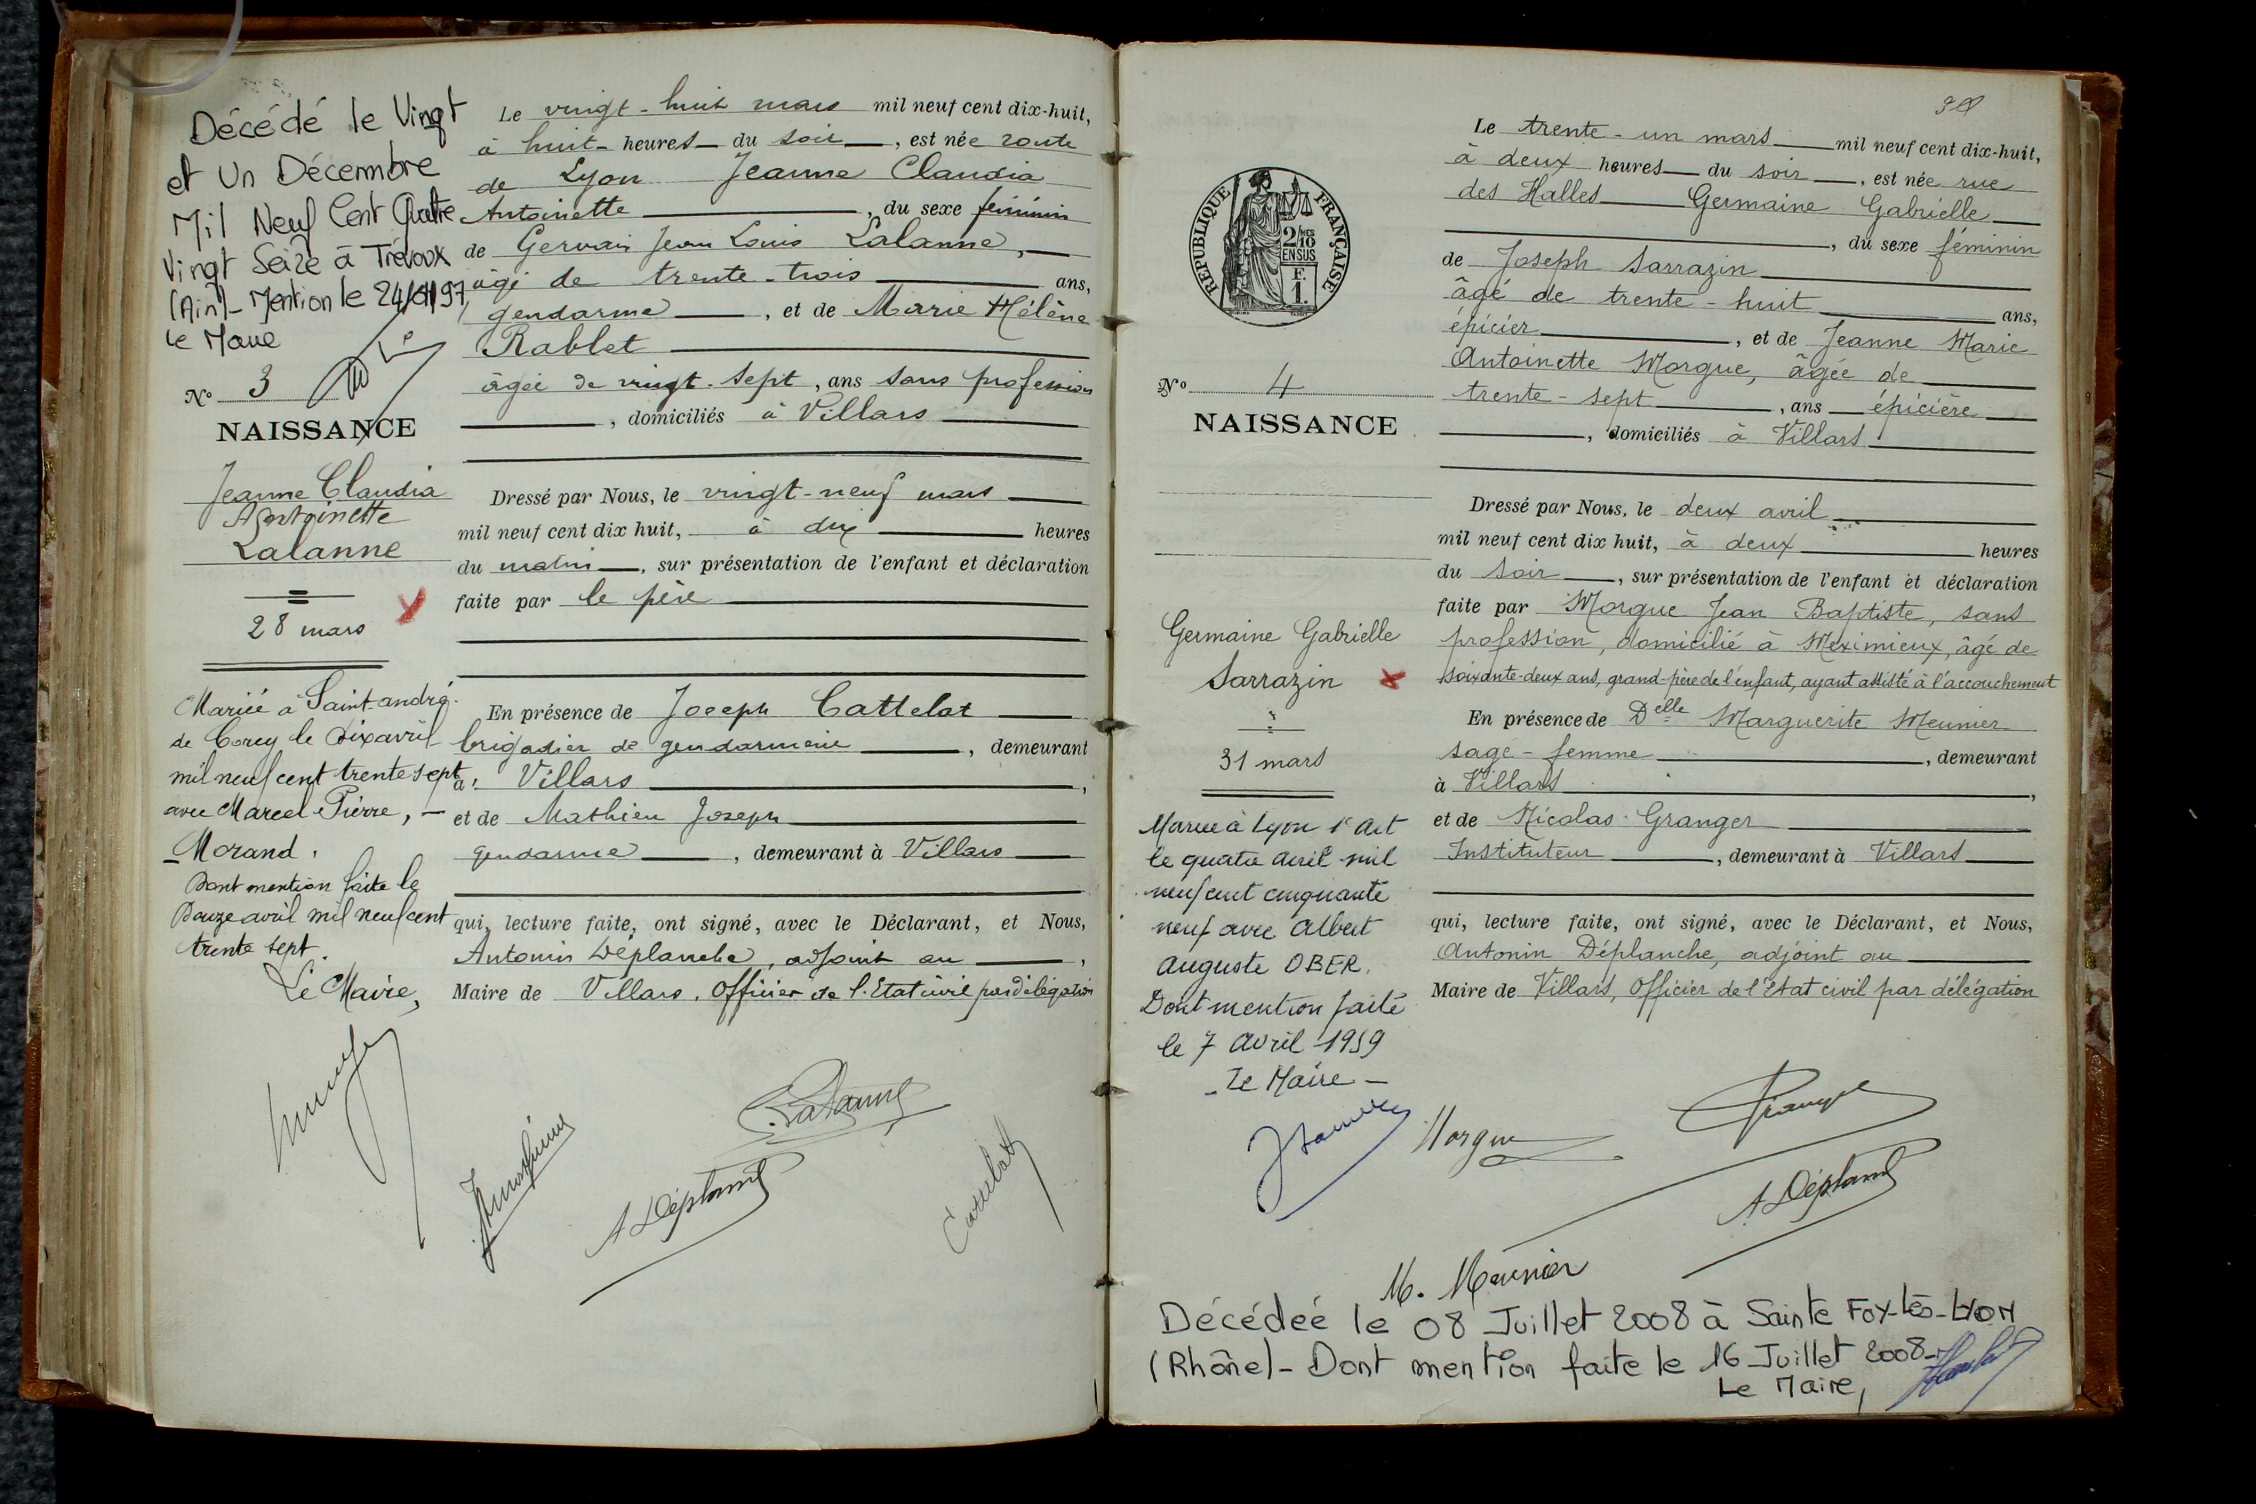 Décédé le Vingt
et Un Décembre
Mil Neuf Cent Quatre
Vingt Seize à Trévoux
(Ain)- Mention le 24/01/97
Le Maire
No 3
NAISSANCE
Jeanne Claudia
Antoinette
Lalanne
28 mars
Mariée à Saint-andré
de Corcy le dix avril
mil neuf cent trente sept
avec Marcel Pierre, -
Morand.
Dont mention faite le
Douze avril mil neuf cent
trente sept.
Le Maire,
Le vingt-huit mars mil neuf cent dix-huit,
à huit heures du soir, est née route
de Lyon Jeanne Claudia
Antoinette, du sexe féminin
de Gervais Jean Louis Lalanne,
âgé de trente-trois ans,
gendarme, et de Marie Hélène
Rablet
âgée de vingt-sept, ans sans profession
, domiciliés à Villars
Dressé par Nous, le vingt-neuf mars
mil neuf cent dix huit, à dix heures
du matin, sur présentation de l'enfant et déclaration
faite par le père
En présence de Joseph Cattelat
brigadier de gendarmerie, demeurant
à Villars,
et de Mathieu Joseph
gendarme, demeurant à Villars
qui, lecture faite, ont signé, avec le Déclarant, et Nous,
Antonin Déplanche, adjoint au,
Maire de Villars, Officier de l'Etat civil par délégation
Lalanne
A Déplanche
30
RÉPUBLIQUE FRANÇAISE
2/10 MES
EN SUS
F.
1.
No 4
NAISSANCE
Germaine Gabrielle
Sarrazin
31 mars
Mariée à Lyon 1er Art
le quatre avril mil
neuf cent cinquante
neuf avec Albert
Auguste OBER.
Dont mention faite
le 7 Avril 1959
- Le Maire -
Le trente-un mars mil neuf cent dix-huit,
à deux heures du soir, est née rue
des Halles Germaine Gabrielle
, du sexe féminin
de Joseph Sarrazin
âgé de trente-huit ans,
épicier, et de Jeanne Marie
Antoinette Morgue, âgée de
trente-sept, ans épicière
, domiciliés à Villars
Dressé par Nous, le deux avril
mil neuf cent dix huit, à deux heures
du soir, sur présentation de l'enfant et déclaration
faite par Morgue Jean Baptiste, sans
profession, domicilié à Meximieux, âgé de
soixante-deux ans, grand-père de l'enfant, ayant assisté à l'accouchement
En présence de Delle Marguerite Meunier
sage-femme, demeurant
à Villars,
et de Nicolas Granger
Instituteur, demeurant à Villars
qui, lecture faite, ont signé, avec le Déclarant, et Nous,
Antonin Déplanche, adjoint au
Maire de Villars, Officier de l'état civil par délégation
Morgue
Granger
A Déplanche
M. Meunier
Décédée le 08 Juillet 2008 à Sainte Foy-Lès-LYON
(Rhône)- Dont mention faite le 16 Juillet 2008-
Le Maire,